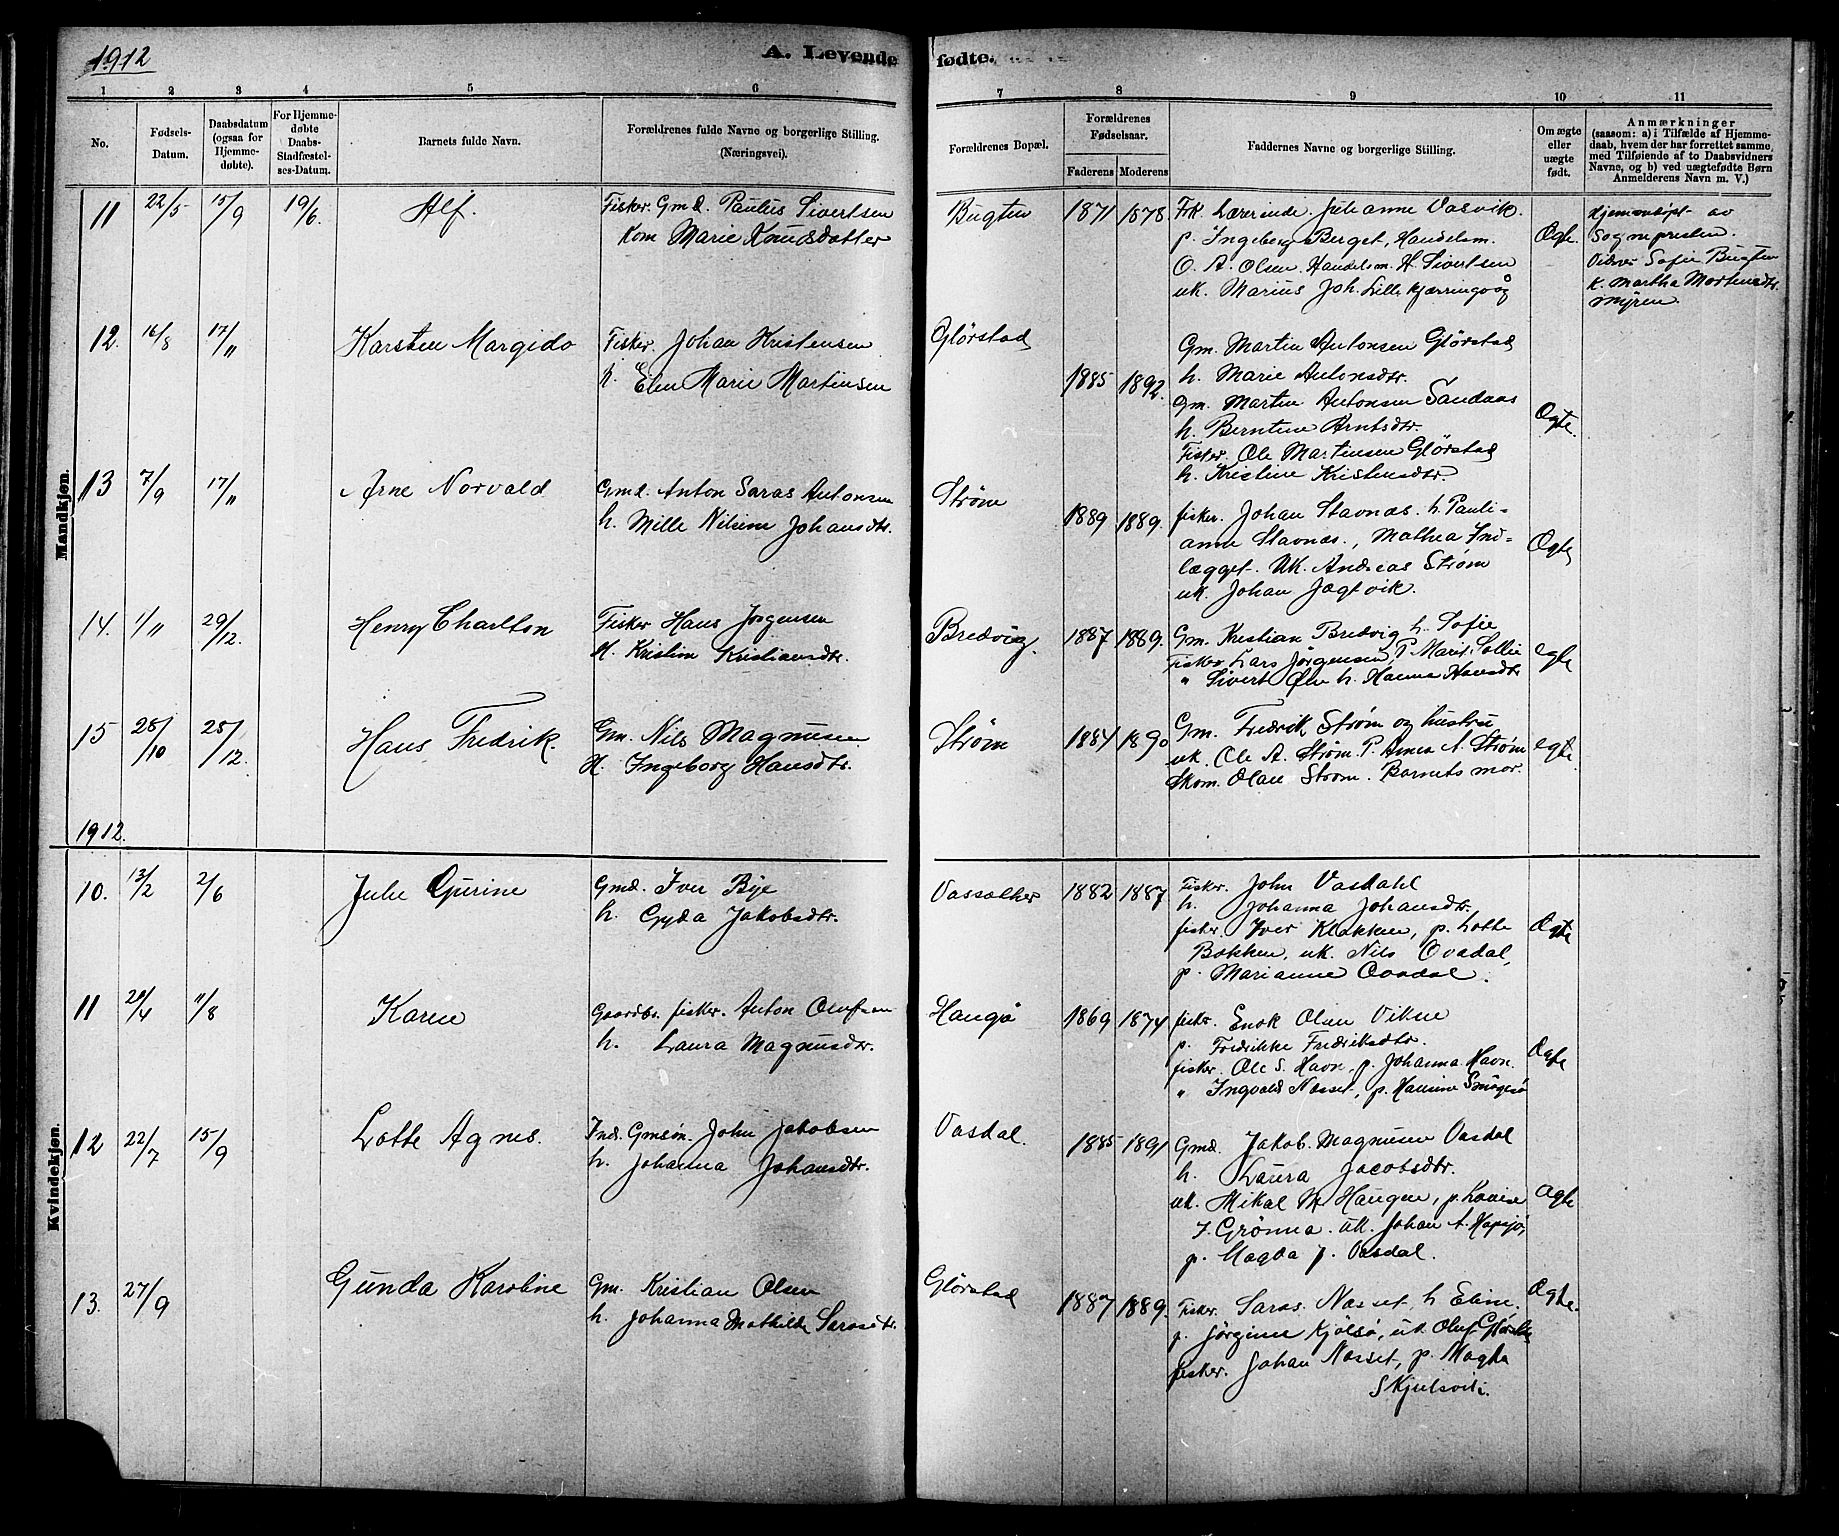 1912
A. Levende fødte.
1 2 3 4 5 6 7 8 9 10 11
No.
Fødsels-
Datum.
Daabsdatum
(ogsaa for
Hjemme-
døbte).
For Hjemme-
døbte
Daabs-
Stadfæstel-
ses-Datum.
Barnets fulde Navn.
Forældrenes fulde Navne og borgerlige Stilling.
(Næringsvei).
Forældrenes Bopæl.
Forældrenes
Fødselsaar.
Faderens Moderens
Faddernes Navne og borgerlige Stilling.
Om ægte
eller
uægte
født.
Anmærkninger
(saasom: a) i Tilfælde af Hjemme-
daab, hvem der har forrettet samme,
med Tilføiende af to Daabsvidners
Navne, og b) ved uægtefødte Børn
Anmelderens Navn m. V.)
Mandkjøn.
11 22/5 15/9 19/6. Alf.
Fisker. Gmd. Paulus Sivertsen
Kone Marie Knudsdatter
Bugten 1871 1878
Frk. Lærerinde. Johanne Vasvik.
p. Ingeborg Berget, Handelsm.
O. A. Olsen. Handelsm. H. Sivertsen
uk. Marius Joh. Lille Kjærringvåg
Ægte.
Hjemmedøpt av
Sognepresten.
Vidner Sofie Bugten
k. Martha Mortensdtr.
Myren.
12. 16/8 17/11 Karsten Margido
Fisker. Johan Kristensen
h. Elen Marie Martinsen
Glørstad 1885 1892.
Gm. Martin Antonsen Glørstad
h. Marie Antonsdtr.
Gm. Martin Antonsen Sandaas
h. Berntine Arntsdtr.
Fisker. Ole Martinsen Glørstad
h. Kristine Kristensdtr.
Ægte.
13 7/9 17/11 Arne Norvald
Gmd. Anton Saras Antonsen
h. Mille Nilsine Johansdtr.
Strøm 1889 1889.
fisker. Johan Stavnæs. h. Pauli-
anne Stavnæs., Mathea Ind-
lægget. Uk. Andreas Strøm
uk. Johan Jægtvik.
Ægte
14. 1/11 29/12. Henry Charlton
Fisker Hans Jørgensen
H. Kristine Kristiansdtr.
Bredvig. 1887 1889.
Gm. Kristian Bredvig h. Sofie
Fisker Lars Jørgensen, P. Marit Sollie
" Sivert Øien h. Hanna Hansdtr
egte
15 28/10 25/12. Hans Fredrik.
Gm. Nils Magnusen
H. Ingeborg Hansdtr.
Strøm 1884 1890
Gm. Fredrik Strøm og hustru
uk. Ole A. Strøm. P. Anna A. Strøm
Skom. Olau Strøm. Barnets mor.
egte
1912.
Kvindekjøn.
10. 13/2 2/6 Julie Gurine
Gmd. Iver Bye
h. Gyda Jakobsdtr.
1882 1887
Fisker. John Vasdahl
h. Johanna Johansdtr.
fisker. Iver Klakken, p. Lotte
Bakken, uk. Nils Ovadal,
p. Marianne Ovadal.
Ægte
11 29/4 11/8 Karen
Gaardbr. fisker. Anton Olufsen
h. Laura Magnusdtr.
Haugø 1869 1874
fisker. Enok Olsen Vikne
p. Fredrikke Fredriksdtr.
fisker. Ole S. Havn, p. Johanna Havn.
" Ingvald Næsset, p. Hansine Smågesø
Ægte
12 22/7 15/9 Lotte Agnes.
Ind. Gmsøn. John Jakobsen
h. Johanna Johansdtr.
Vasdal. 1885 1891
Gmd. Jakob Magnusen Vasdal
h. Laura Jacobsdtr.
uk. Mikal M. Haugen, p. Lovise
J. Grønna. uk. Johan A. Hopsjø,
p. Magda J. Vasdal.
Ægte
13. 27/9 Gunda Karoline
Gm. Kristian Olsen
h. Johanna Mathilde Sarasdtr.
Glørstad 1887 1889.
Fisker. Saras. Næsset, h. Eline.
p. Jørgine Kjølsø, uk. Oluf Glørstad
fisker. Johan Næsset, p. Magda
Skjulsvik.
Ægte.